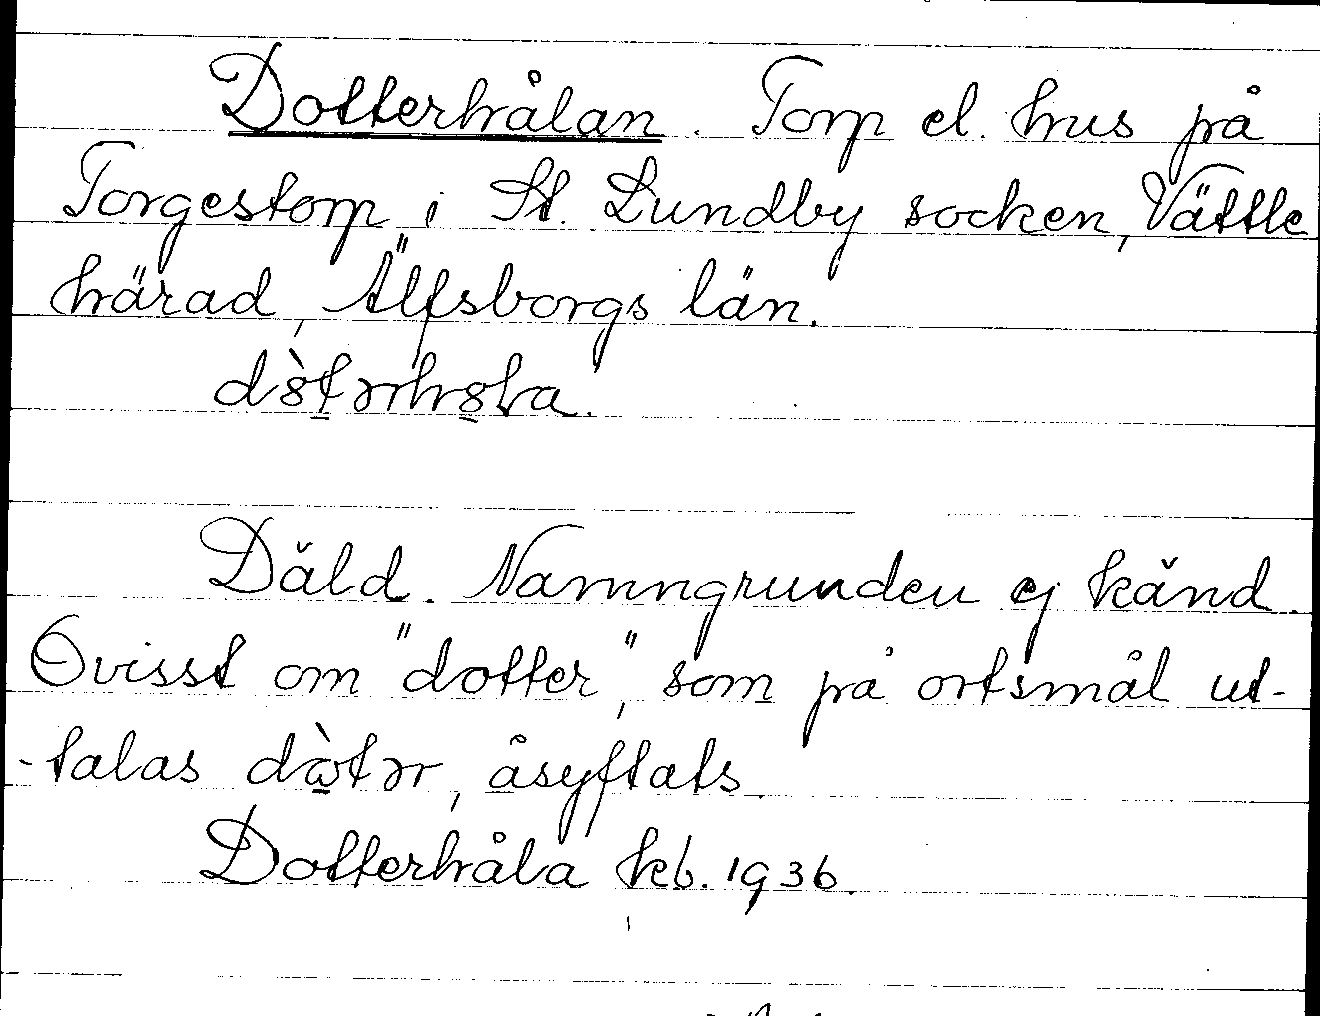 Dotterhålan. Torp el. hus på
Torgestorp i St. Lundby socken, Vättle
härad, Älfsborgs län.
Däld. Namngrunden ej känd.
Ovisst om "dotter", som på ortsmål ut-
-talas dὼtər, åsyftats.
Dotterhåla kb. 1936.